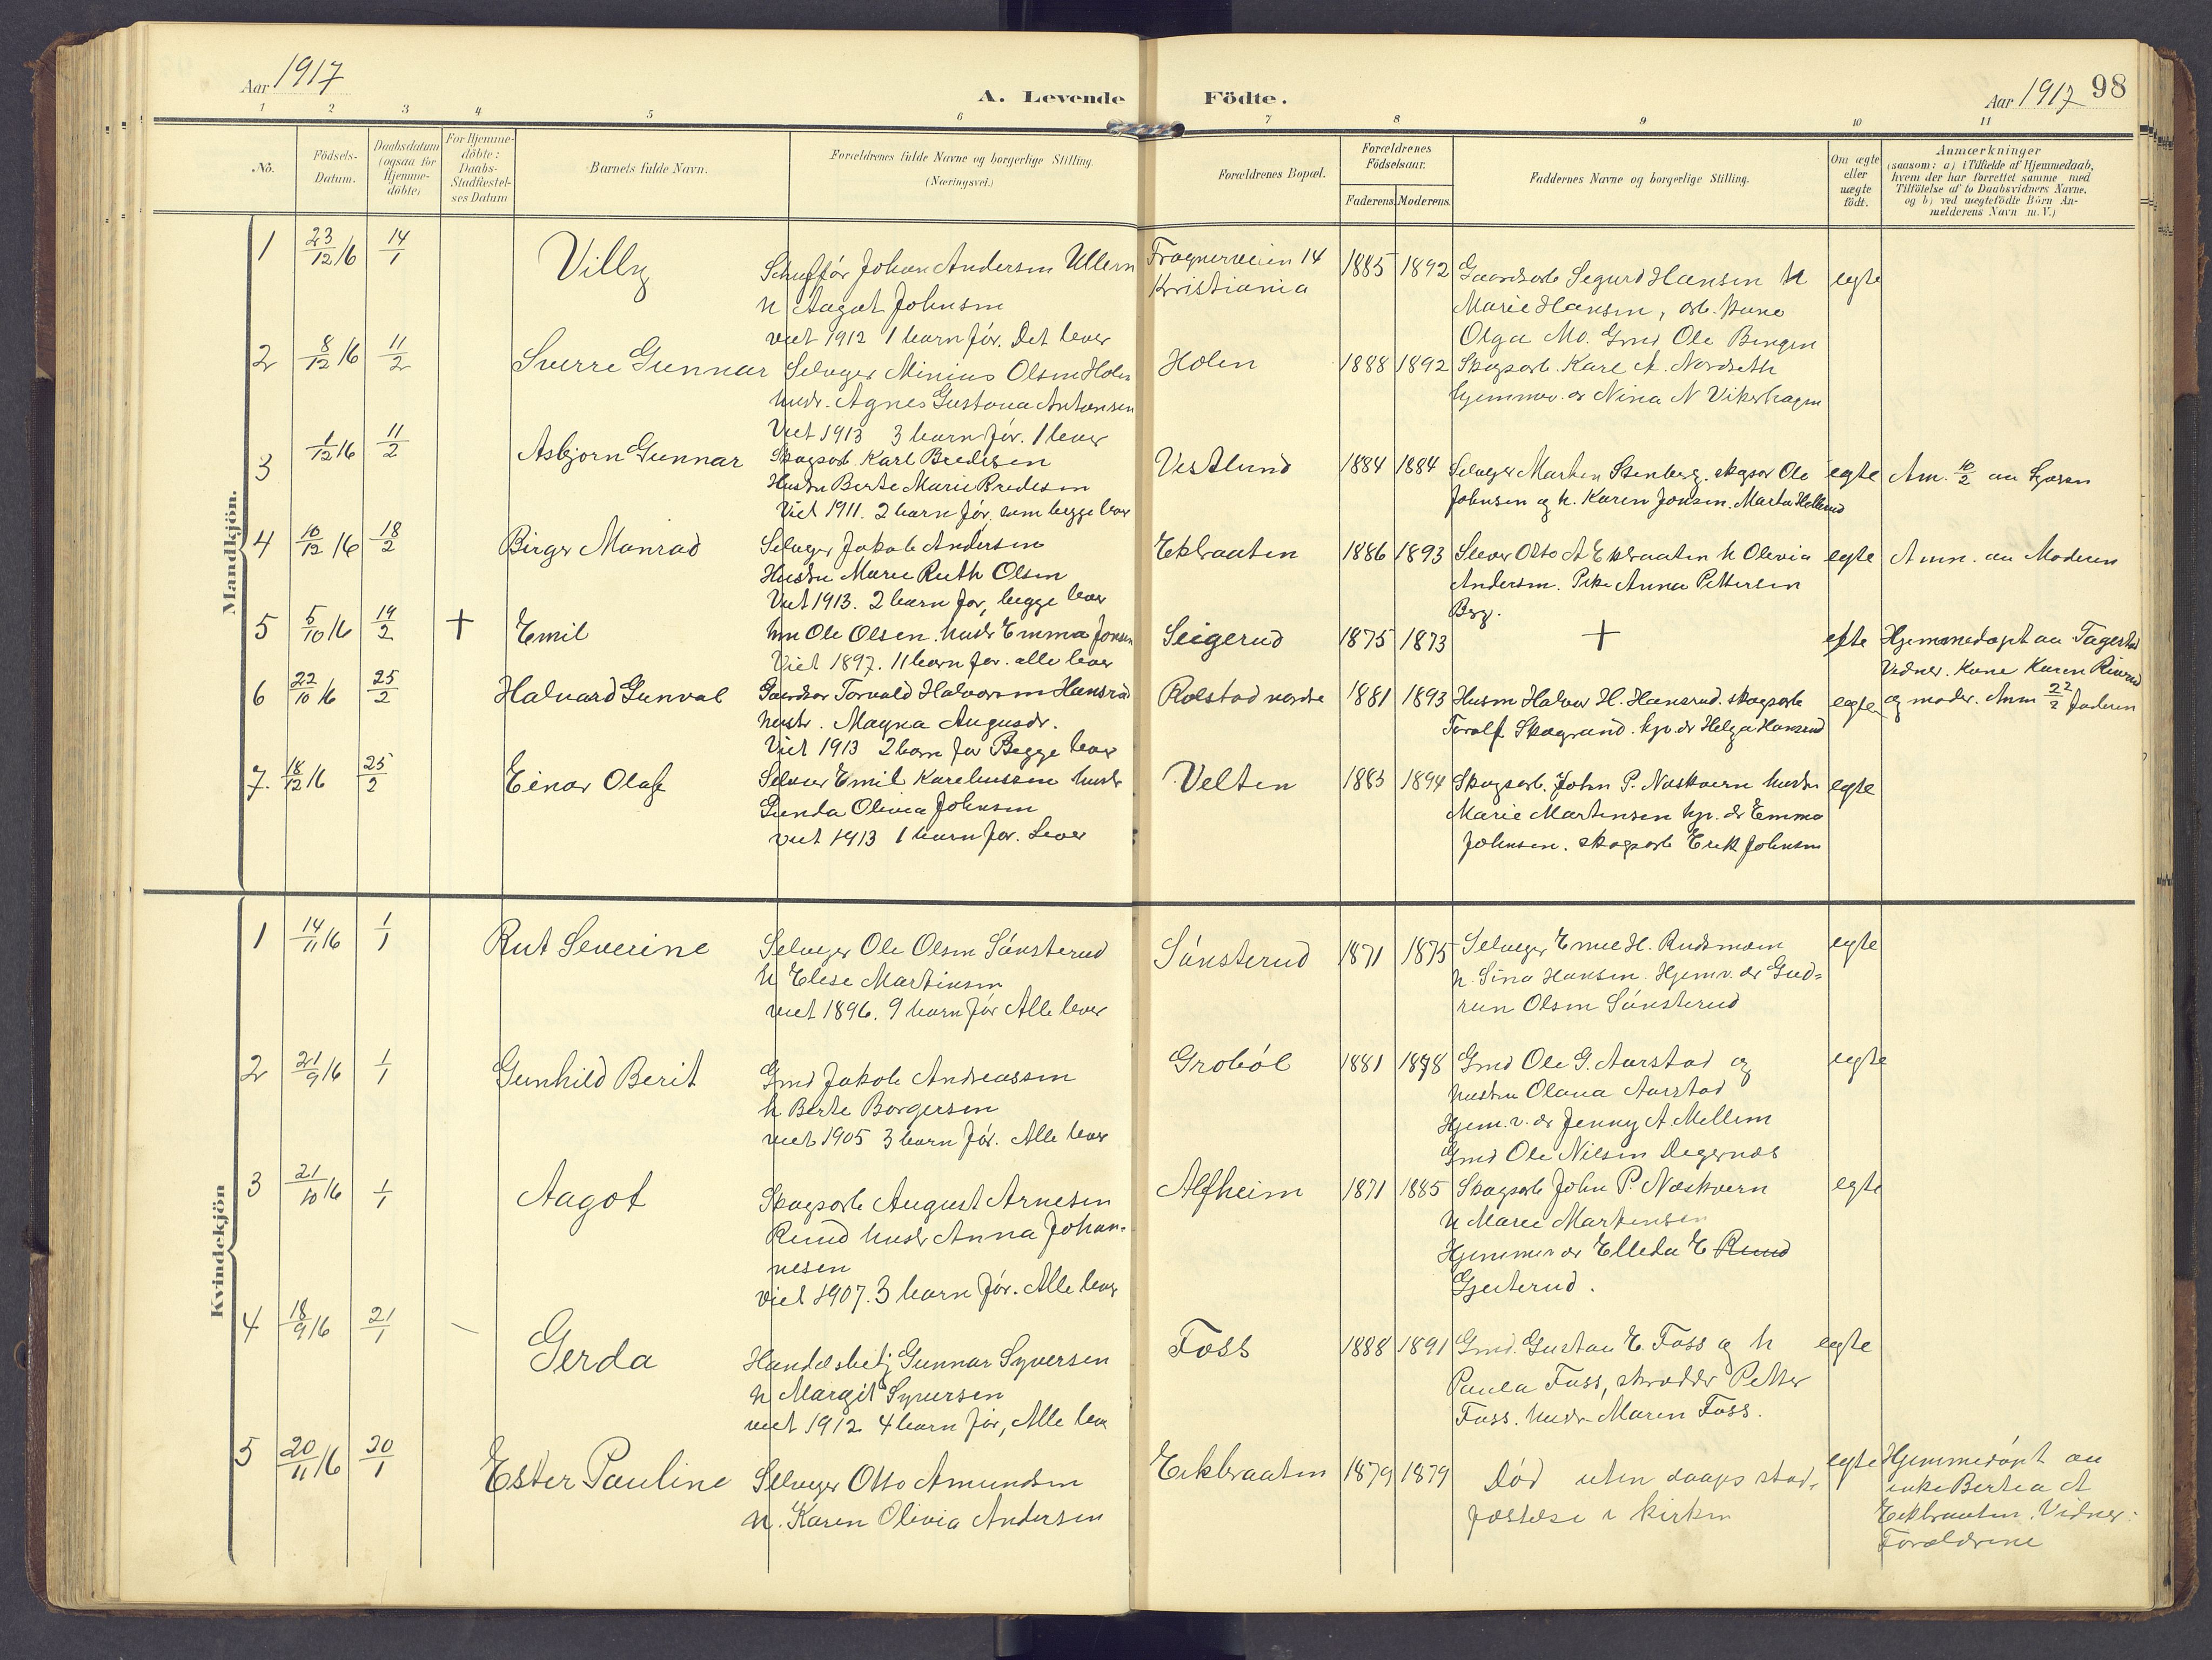 Aar 1917
A. Levende Födte.
Aar 1917 98
1 2 3 4 5 6 7 8 9 10 11
No.
Födsels-Datum.
Daabsdatum (ogsaa for Hjemme-döbte)
For Hjemme-döbte: Daabs-Stadfæstel-ses Datum
Barnets fulde Navn.
Forældrenes fulde Navne og borgerlige Stilling. (Næringsvei.)
Forældrenes Bopæl.
Forældrenes Födselsaar.
Faderens. Moderens.
Faddernes Navne og borgerlige Stilling.
Om ægte eller uægte födt.
Anmærkninger
(saasom: a) i Tilfælde af Hjemmedaab, hvem der har forrettet samme med Tilföielse af to Daabsvidners Navne. og b) ved uægtefödte Börn An-melderens Navn m. V.)
Mandkjön.
1 23/12 16 14/1 Villy
Schuffør Johan Andersen Ullern
h Aagot Johnsen
viet 1912 1 barn før. Det lever
Frognerveien 14
Kristiania
1885 1892
Gaardsarb Segurd Hansen h
Marie Hansen, arb. kune
Olga Mo. Gmd Ole Bergen
egte
2 8/12 16 11/2 Sverre Gunnar
Selveger Minius Olsen Holen
husdr. Agnes Gustava Antonsen
Viet 1913 3 barn før. 1 lever
Holen
1888 1892
Skogsarb. Karl A. Nordseth
hjemmev. dr Nina N Vikerhagen
3 1/12 16 11/2 Asbjørn Gunnar
Skogsarb. Karl Bredesen
Hustru Berte Marie Bredesen
Viet 1911. 2 barn før, som begge lever
Vestlund
1884 1884
Selveger Marten Stenberg. skogsar Ole
Johnsen og h. Karen Jonsen. Marta Hellerud
egte
Am. 10/2 av
4 10/12 16 18/2 Birger Monrad
Selveger Jakob Andersen
Hustru Marie Ruth Olsen
Viet 1913. 2 barn før, begge lever
Ekbraaten
1886 1893
Otto A Ekbraaten h Olivia
Andersen. Pike Anna Pettersen
Berg.
egte
Anm. av Moderen
5 5/10 16 14/2 + Emil
hm Ole Olsen. husdr Emma Jonsen
Viet 1897. 11 barn før. alle lever
Seigerud
1875 1873
+
egte
Hjemmedøpt av
Vidner. Kone Karen
og moder. Anm 22/2 faderen
6 22/10 16 25/2 Halvard Gunval
Torvald Halvorsen Hansrud
hustr. Magna Augusdr.
Viet 1913 2 barn før Begge lever
Rolstad nordre
1881 1893
Husm Halvor H. Hansrud. skogsarb
Torolf Skogrand. hp. dr Helga Hansrud
egte
7. 18/12 16 25/2 Einar Olaf
Emil Kareliussen hustr
Gunda Olivia Johnsen
viet 1913 1 barn før. Lever
Velten
1885 1894
Skogsarb. John P. Næskvern hustru
Marie Martinsen hp. dr Emma
Johnsen. skogsarb Erik Johnsen
egte
Kvindekjön
1 14/11 16 1/1 Rut Severine
Selveger Ole Olsen Sónsterud
h Elese Martinsen
viet 1896. 9 barn før Alle lever
Sónsterud
1871 1875
Selveger Emil H. Rudsmoen
h. Sina Hansen. Hjemv. dr Gud-
run Olsen Sónsterud
egte
2 21/9 16 1/1 Gunhild Berit
Gmd Jakob Andreassen
h Berte Borgersen
viet 1905 3 barn før. Alle lever
Groból
1881 1878
Gmd Ole G. Aarstad og
hustru Olava Aarstad
Hjem. v. dr Jenny A. Mellem
Gmd Ole Nilsen Degernes
egte
3 21/10 16 1/1 Aagot
Skogsarb August Arnesen
Ruud husdr Anna Johan-
nesen
Viet 1907. 3 barn før. Alle lever
Alfheim
1871 1885
Skogsarb John P. Næskvern
h Marie Martinsen
Hjemmev dr Elleda E Ruud
Gjeterud.
egte
4 18/9 16 21/1 — Gerda
Handelsbetj Gunnar Syversen
h Margit Syversen
viet 1912 4 barn før, Alle lever
Foss
1888 1891
Gmd. Gustav E. Foss og h
Paula Foss, skrædder Petter
Foss. husdr Maren Foss.
egte
5 20/11 16 20/1 Ester Pauline
Selveger Otto Amundsen
h. Karen Olivia Andersen
Eekbraaten
1879 1879
Død uten daaps stad-
fæstelse i kirken
egte
Hjemmedøpt av
enke Bertea A
Eekbraaten. Vidner:
Forældrene